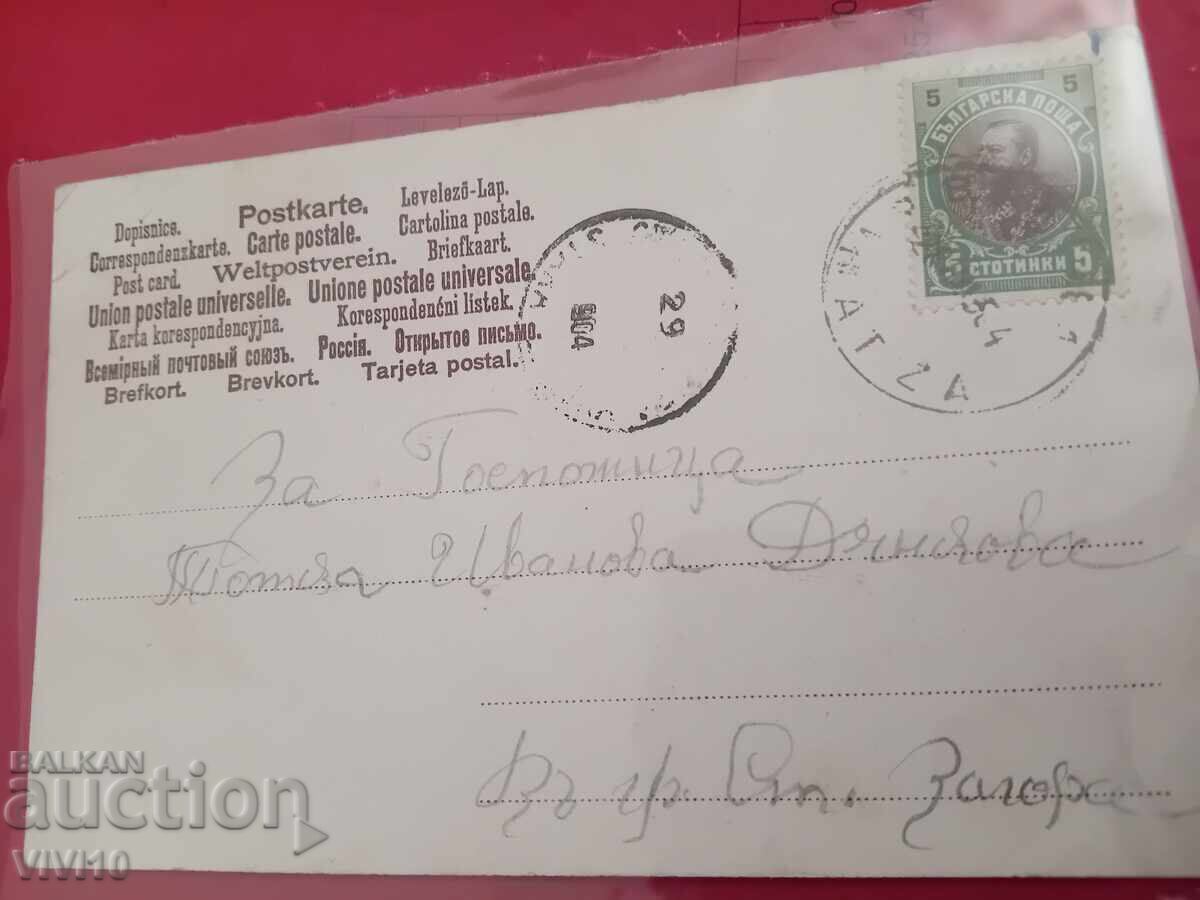 Dopisnice. Postkarte. Levelező-Lap.
Correspondenzkarte. Carte postale. Cartolina postale.
Post card. Weltpostverein. Briefkaart.
Union postale universelle. Unione postale universale.
Karta korespondencyjna. Korespondenćni listek.
Всемірный почтовый союзъ. Россія. Открытое письмо.
Brefkort. Brevkort. Tarjeta postal.
5 5
БЪЛГАРСКА ПОЩА
5 СТОТИНКИ 5
29
904
За Госпожица
Иванова
Въ гр. Ст. Загора
BALKAN
auction
VIVI10